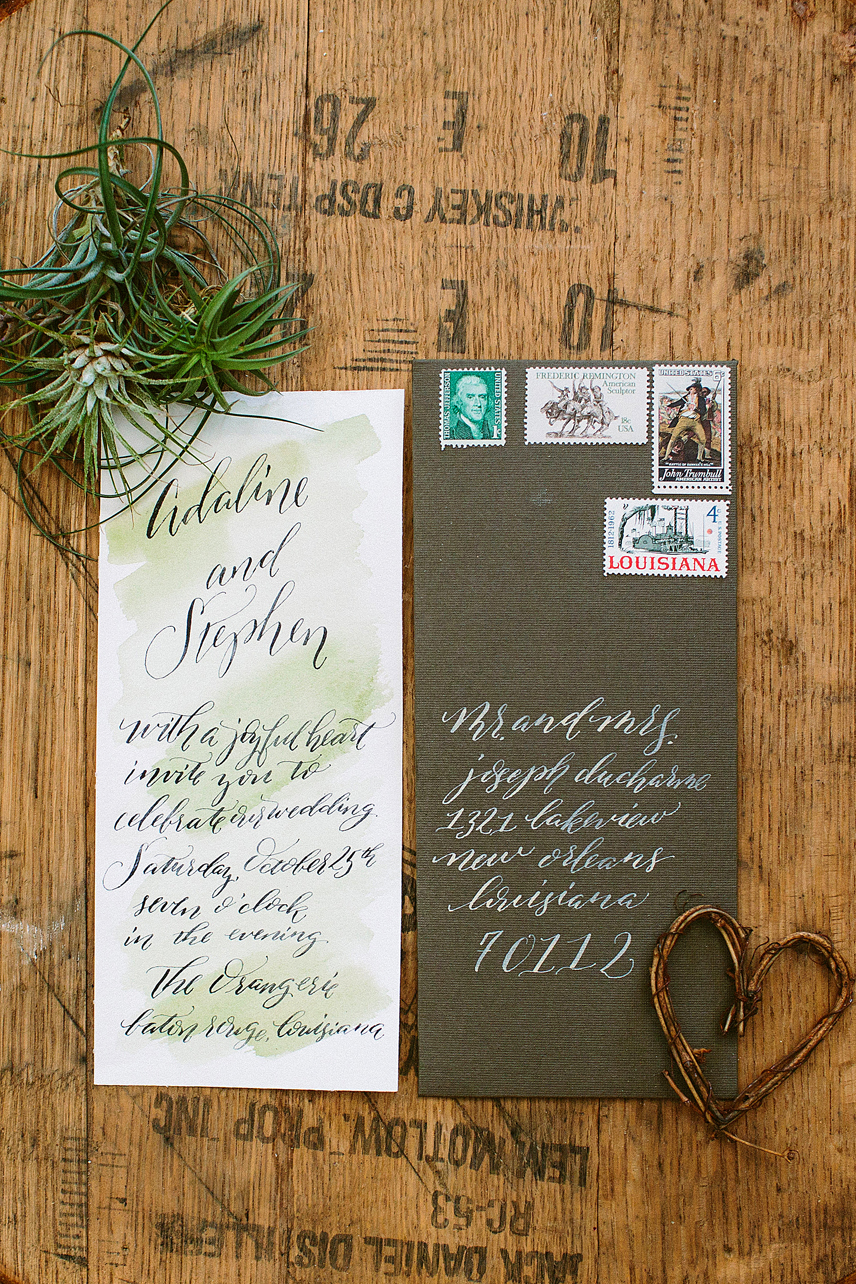 26
E
10
WHISKEY C DSP TENN
E
10
THOMAS JEFFERSON
UNITED STATES
1¢
FREDERIC REMINGTON
American
Sculptor
18c
USA
UNITED STATES 6c
"BATTLE OF BUNKER'S HILL"
John Trumbull
AMERICAN ARTIST
1812-1962
4¢
U.S. POSTAGE
LOUISIANA
Adaline
and
Stephen
with a joyful heart
invite you to
celebrate our wedding
Saturday, October 25th
seven o'clock
in the evening
The Orangerie
baton rouge, louisiana
Mr. and Mrs.
joseph ducharme
1321 lakeview
new orleans
louisiana
70112
LEM MOTLOW, PROP INC
RC-53
JACK DANIEL DISTILLERY